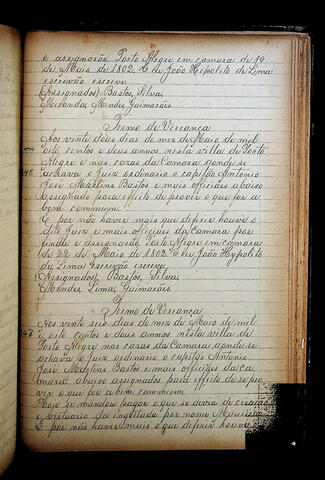 e assignarão Porto Alegre em camara de 19
de Maio de 1802. E eu João Hypolito de Lima
escrivão escrevi.
(Assignados) Bastos, Silva,
Miranda, Mendes, Guimarães.
Termo de Vereança
Aos vinte dous dias do mez de Maio de mil
oito centos e dous annos nesta villa de Porto
Alegre e nas cazas da Camara aonde se
achava o Juiz ordinario o capitão Antonio
José Martins Bastos e mais officiaes abaixo
assignado para effeito de prover o que for a
bem commum.
E por não haver mais que deferir houve o
dito Juiz e mais officiaes da Camara por
finda e assignarão Porto Alegre em camara
de 22 de Maio de 1802. E eu João Hypolito
de Lima escrivão escrevi.
(Assignados), Bastos, Silva,
Mendes, Lima, Guimarães.
Termo de Vereança
Aos vinte seis dias do mez de Maio de mil
e oito centos e dous annos nesta villa de
Porto Alegre nas cazas da Camara aonde se
achava o Juiz ordinario o capitão Antonio
José Martins Bastos e mais officiaes da ca-
mara abaixo assignados para effeito de pro-
ver o que for a bem commum
Hoje se mandou pagar o que se devia de criação
e vistuario da ingeitada por nome Mauricia
E por não haver mais o que deferir houve